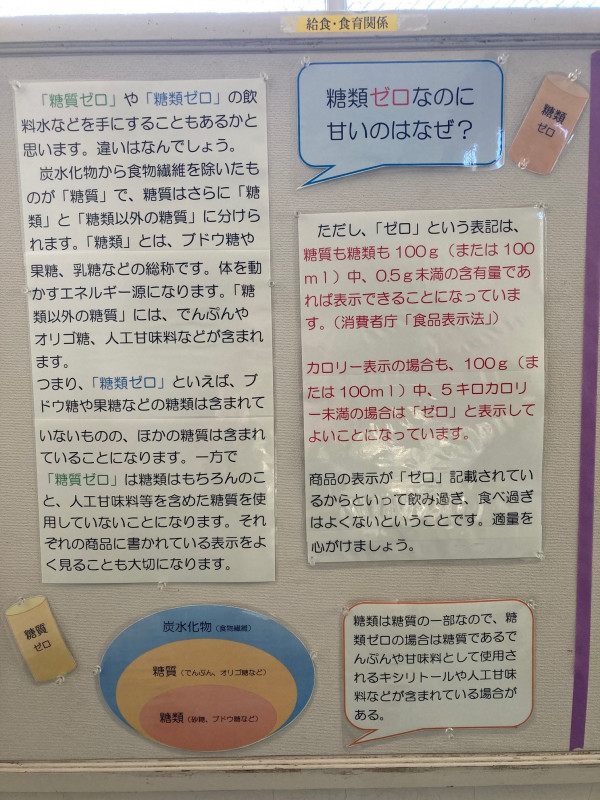 給食・食育関係
糖類ゼロなのに
甘いのはなぜ？
糖類
ゼロ
「糖質ゼロ」や「糖類ゼロ」の飲
料水などを手にすることもあるかと
思います。違いはなんでしょう。
炭水化物から食物繊維を除いたも
のが「糖質」で、糖質はさらに「糖
類」と「糖類以外の糖質」に分けら
れます。「糖類」とは、ブドウ糖や
果糖、乳糖などの総称です。体を動
かすエネルギー源になります。「糖
類以外の糖質」には、でんぷんや
オリゴ糖、人工甘味料などが含まれ
ます。
つまり、「糖類ゼロ」といえば、ブ
ドウ糖や果糖などの糖類は含まれて
いないものの、ほかの糖質は含まれ
ていることになります。一方で
「糖質ゼロ」は糖類はもちろんのこ
と、人工甘味料等を含めた糖質を使
用していないことになります。それ
ぞれの商品に書かれている表示をよ
く見ることも大切になります。
ただし、「ゼロ」という表記は、
糖質も糖類も100ｇ（または100
ｍｌ）中、0.5ｇ未満の含有量であ
れば表示できることになっていま
す。（消費者庁「食品表示法」）
カロリー表示の場合も、100ｇ（ま
たは100ｍｌ）中、5キロカロリ
ー未満の場合は「ゼロ」と表示して
よいことになっています。
商品の表示が「ゼロ」記載されてい
るからといって飲み過ぎ、食べ過ぎ
はよくないということです。適量を
心がけましょう。
糖質
ゼロ
炭水化物（食物繊維）
糖質（でんぷん、オリゴ糖など）
糖類（砂糖、ブドウ糖など）
糖類は糖質の一部なので、糖
類ゼロの場合は糖質であるで
んぷんや甘味料として使用され
るキシリトールや人工甘味
料などが含まれている場合が
ある。